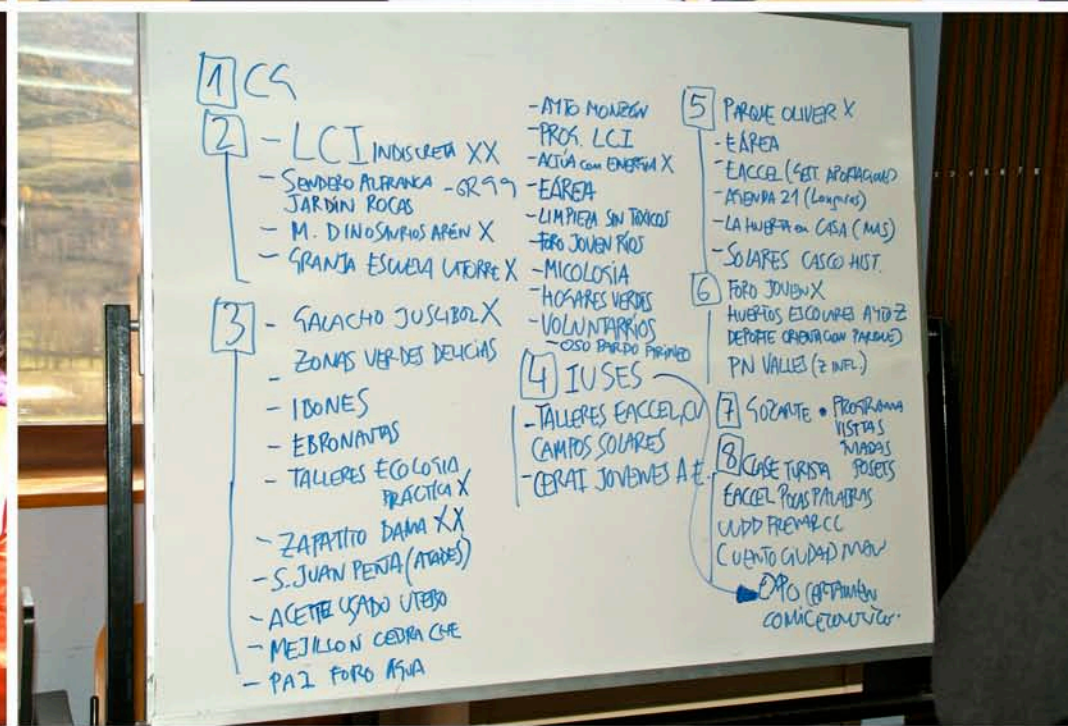 1 CG
2 - LCI INDISCRETA XX
- SENDERO ALFRANCA - GR99
JARDÍN ROCAS
- M. DINOSAURIOS ARÉN X
- GRANJA ESCUELA LATORRE X
3 - GALACHO JUSLIBOL X
- ZONAS VERDES DELICIAS
- IBONES
- EBRONAUTAS
- TALLERES ECOLOGIA
PRÁCTICA X
- ZAPATITO DAMA XX
- S. JUAN PEÑA (ATADES)
- ACEITE USADO UTEBO
- MEJILLON CEBRA CHE
- PAI FORO AGUA
- AYTO MONZÓN
- PROG. LCI
- ACTÚA con ENERGÍA X
- EÁREA
- LIMPIEZA SIN TÓXICOS
- FORO JOVEN RÍOS
- MICOLOGÍA
- HOGARES VERDES
- VOLUNTARRÍOS
- OSO PARDO PIRINEO
4 IUSES
- TALLERES EACCEL, CV
CAMPOS SOLARES
- CERAI JOVENES A.E.
5 PARQUE OLIVER X
- EÁREA
- EACCEL (GEST. APORTACIONES)
- AGENDA 21 (Longares)
- LA HUERTA en CASA (MAS)
- SOLARES CASCO HIST.
6 FORO JOVEN X
HUERTOS ESCOLARES AYTO Z
DEPORTE ORIENTACION PARQUE)
PN VALLES (Z INFL.)
7 GOZARTE • PROGRAMA
VISITAS
POSETS
8 CLASE TURISTA
EACCEL POCAS PALABRAS
UUDD FREMAP CC
CUENTO CIUDAD
CERTAMEN